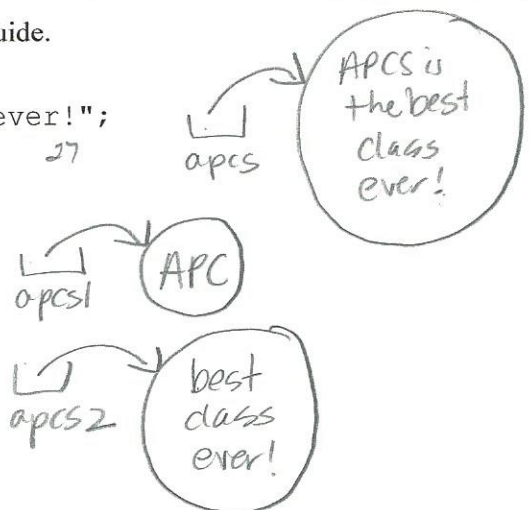 uide.
ever!";
27
apcs
APCS is
the best
class
ever!
apcs1
APC
apcs2
best
class
ever!